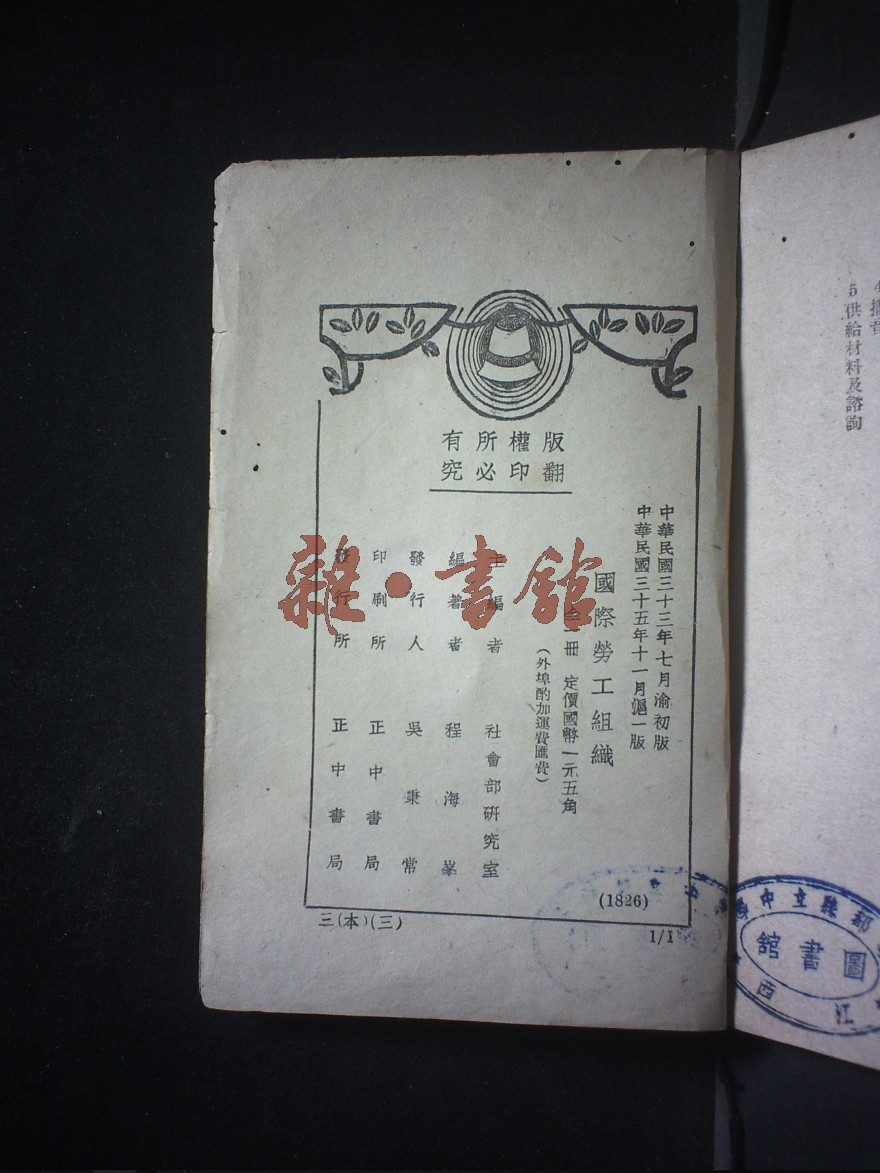 版權所有
翻印必究
中華民國三十三年七月渝初版
中華民國三十五年十一月滬一版
國際勞工組織
全一冊 定價國幣一元五角
（外埠酌加運費匯費）
主編者 社會部研究室
編著者 程海峯
發行人 吳秉常
印刷所 正中書局
發行所 正中書局
(1826)
三(本)(三)
1/1
雜·書館
5 供給材料及諮詢
縣立中
圖書館
江西